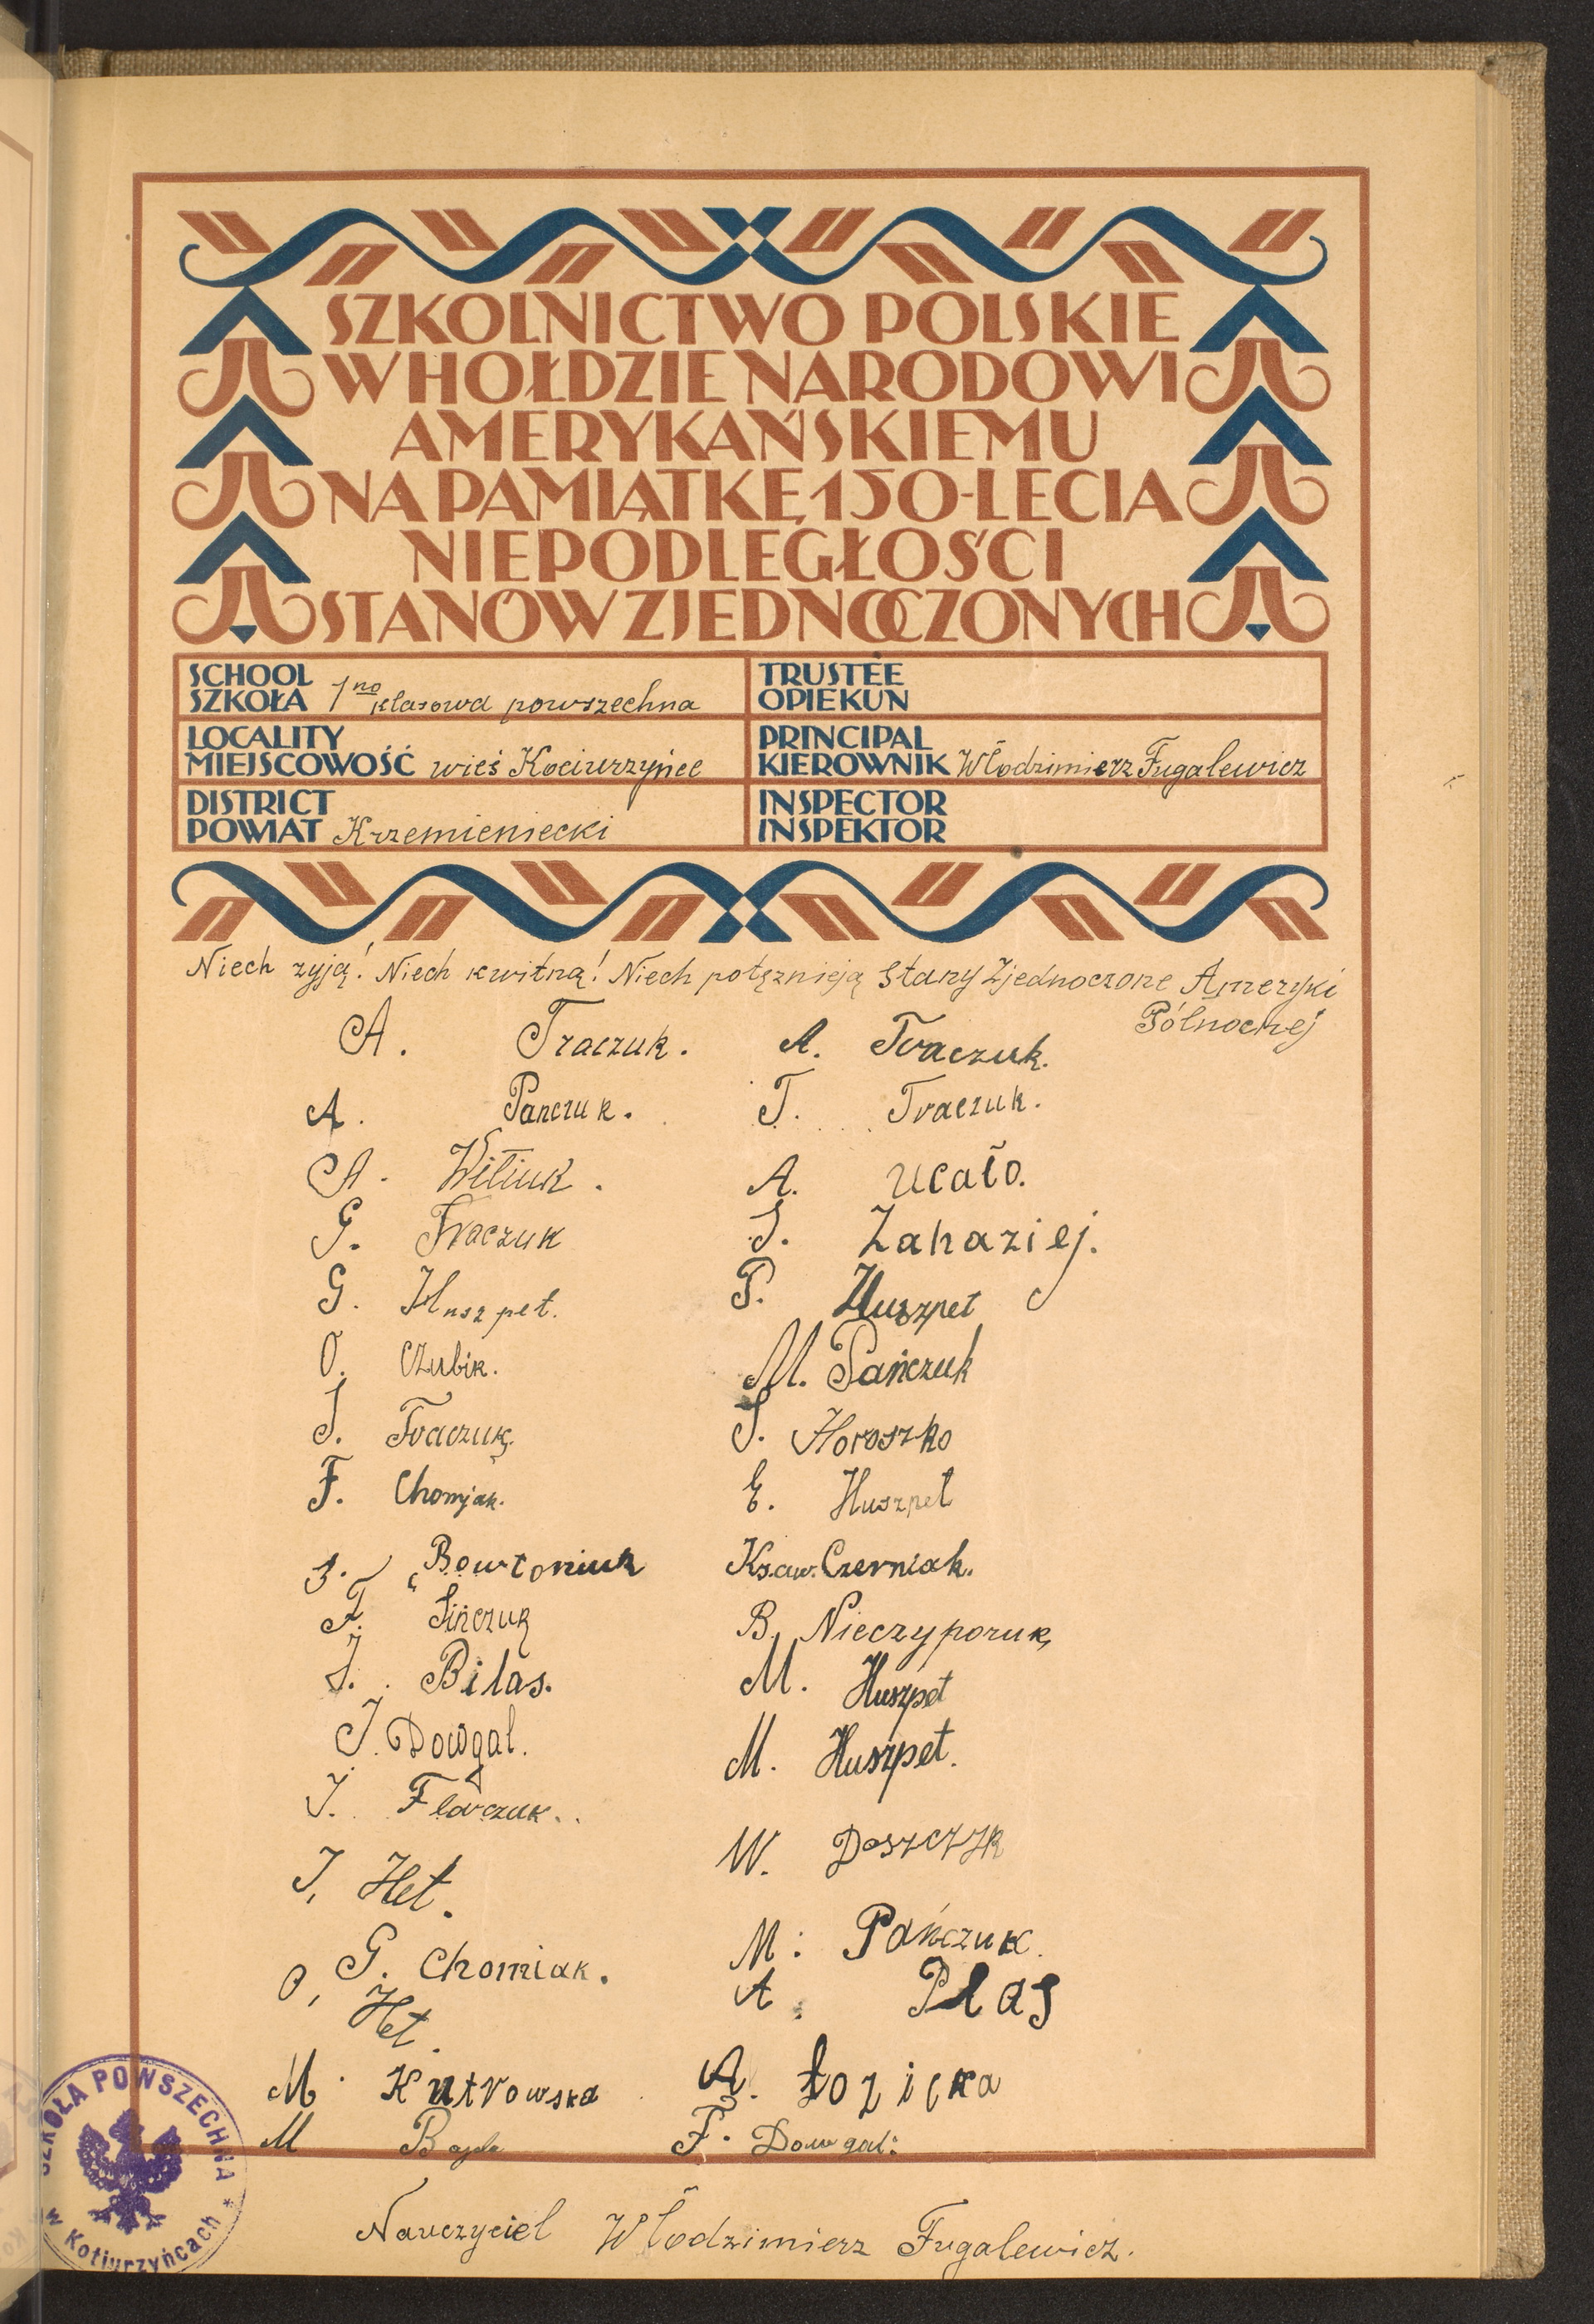 SZKOLNICTWO POLSKIE
W HOŁDZIE NARODOWI
AMERYKAŃSKIEMU
NA PAMIĄTKĘ 150-LECIA
NIEPODLEGŁOŚCI
STANÓW ZJEDNOCZONYCH
SCHOOL
SZKOŁA 1no klasowa powszechna
TRUSTEE
OPIEKUN
LOCALITY
MIEJSCOWOŚĆ wieś Kociurzyńce
PRINCIPAL
KIEROWNIK Włodzimierz Fugalewicz
DISTRICT
POWIAT Krzemieniecki
INSPECTOR
INSPEKTOR
Niech żyją! Niech kwitną! Niech potężnieją Stany Zjednoczone Ameryki
Północnej
A. Traczuk.
A. Panczuk.
A. Witiuk.
G. Traczuk
G. Huszpet.
O. Czubik.
J. Traczuk.
F. Chomjak.
Bowtoniuk
F. Sińczuk
J. Bilas.
J. Dowgal.
J. Flarczuk.
J. Het.
G. Chomiak.
O. Het.
M. Kutrowska
M
A. Traczuk.
T. Traczuk.
A. Ucało.
J. Zahaziej.
P. Huszpet
M. Pańczuk
J. Horoszko
E. Huszpet
Ksaw. Czerniak.
B. Nieczyporuk
M. Huszpet
M. Huszpet.
W. Doszczyk
M. Pańczuk.
A. Płas
A. Łozicka
F. Dowgal.
Nauczyciel Włodzimierz Fugalewicz.
SZKOŁA POWSZECHNA
w Kotiurzyńcach *